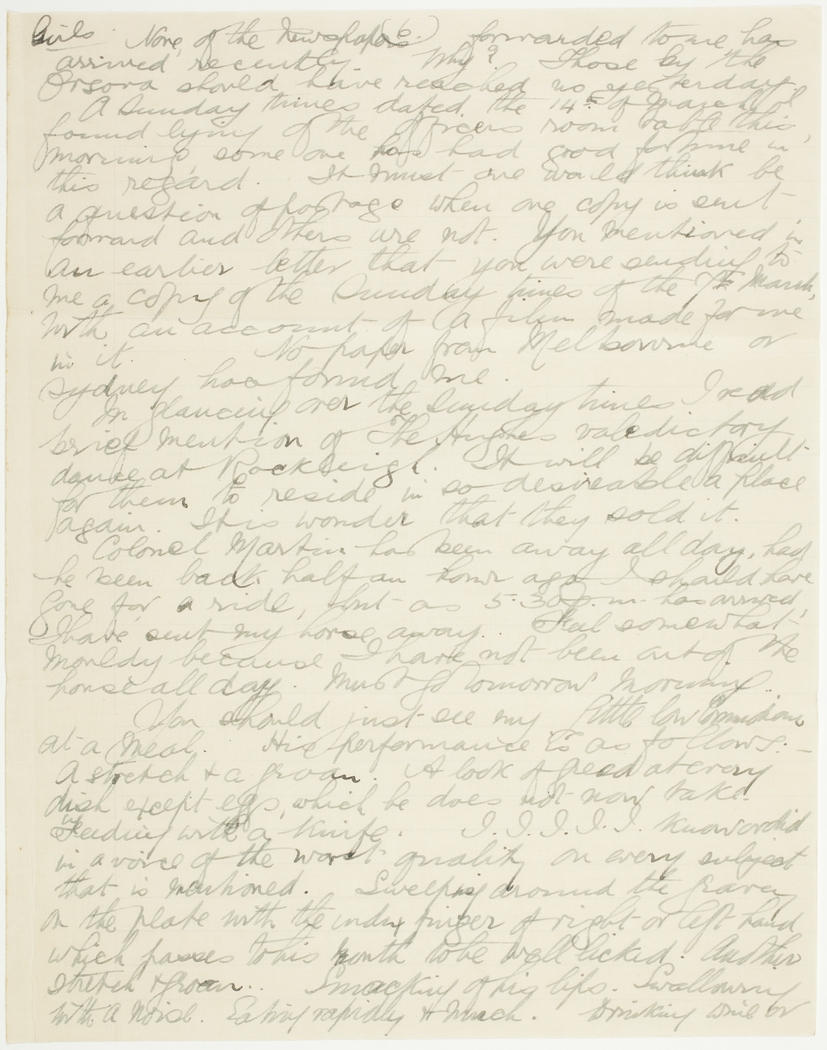 Girls. None of the Newspapers (6.) forwarded to me has
arrived recently. Why? Those by the
Orsova should have reached us yesterday.
A Sunday times dated the 14th of March I
found lying of the Officers room table this
morning some one has had good fortune in
this regard. It must one would think be
a question of postage when one copy is sent
forward and others are not. You mentioned in
an earlier letter that you were sending to
me a copy of the Sunday times of the 7th March,
with an account of a film made for me
in it. No paper from Melbourne or
Sydney has found me.
In glancing over the Sunday times I read
brief mention of The Hughes valedictory
dance at Rockleigh. It will be difficult
for them to reside in so desireable a place
again. It is wonder that they sold it.
Colonel Martin has been away all day, had
he been back half an hour ago I should have
gone for a ride, but as 5.30 p.m. has arrived,
I have sent my horse away. Feel somewhat
mouldy because I have not been out of the
house all day. Must go tomorrow morning.
You should just see my little low
at a meal. His performance is as follows:-
A stretch & a groan. A look of greed at every
dish except eggs, which he does not now take.
Feeding with a Knife. I. I. I. I. I. know or did
in a voice of the worst quality on every subject
that is mentioned. Sweeping around the gravy
on the plate with the index finger of right or left hand
which passes to his mouth to be well licked. Another
stretch & groan.. Smacking of big lips. Swallowing
with a noise. Eating rapidly & much. Drinking wine or